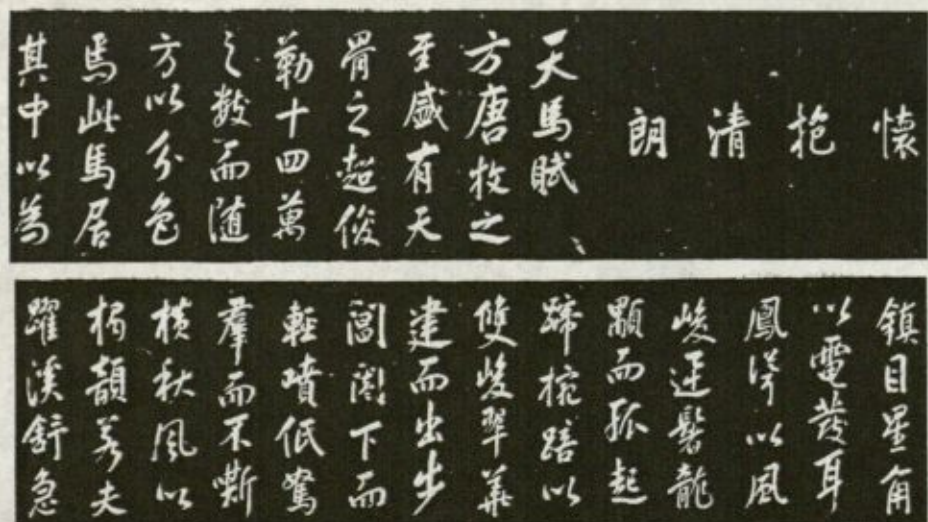 懷抱清朗
天馬賦
方唐牧之
至盛有天
骨之超俊
勒十四萬
之數而隨
方以分色
焉此馬居
其中以為
鎮目星角
以電發耳
鳳聳以風
峻迅鬐龍
顒而孤起
蹄椀踣以
雙峻翠華
建而出步
閶闔下而
輕噴低駑
羣而不嘶
橫秋風以
獨韻若夫
躍溪舒急